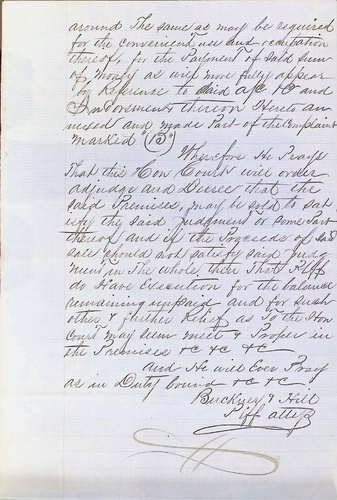 around The same as may be required
for the convenient use and occupation
thereof, for the Payment of said sum
of Money as will more fully appear
by Reference to said a/c &c and
Indorsements thereon Hereto an
nexed and made Part of the Complaint
marked "(B")
Wherefore He Prays
That this Hon Court will order
adjudge and Decree that the
said Premises, may be sold to sat
isfy the said Judgment or some Part
thereof and if the Proceeds of said
sale should not satisfy said judg
ment in The whole, then That Plff
do Have Execution for the balance
remaining unpaid and for such
other & further Relief as To the Hon
Court may seem meet & Proper in
the Premises &c &c &c
and He will Ever Pray
as in Duty bound &c &c
Buckner & Hill
Plff attys